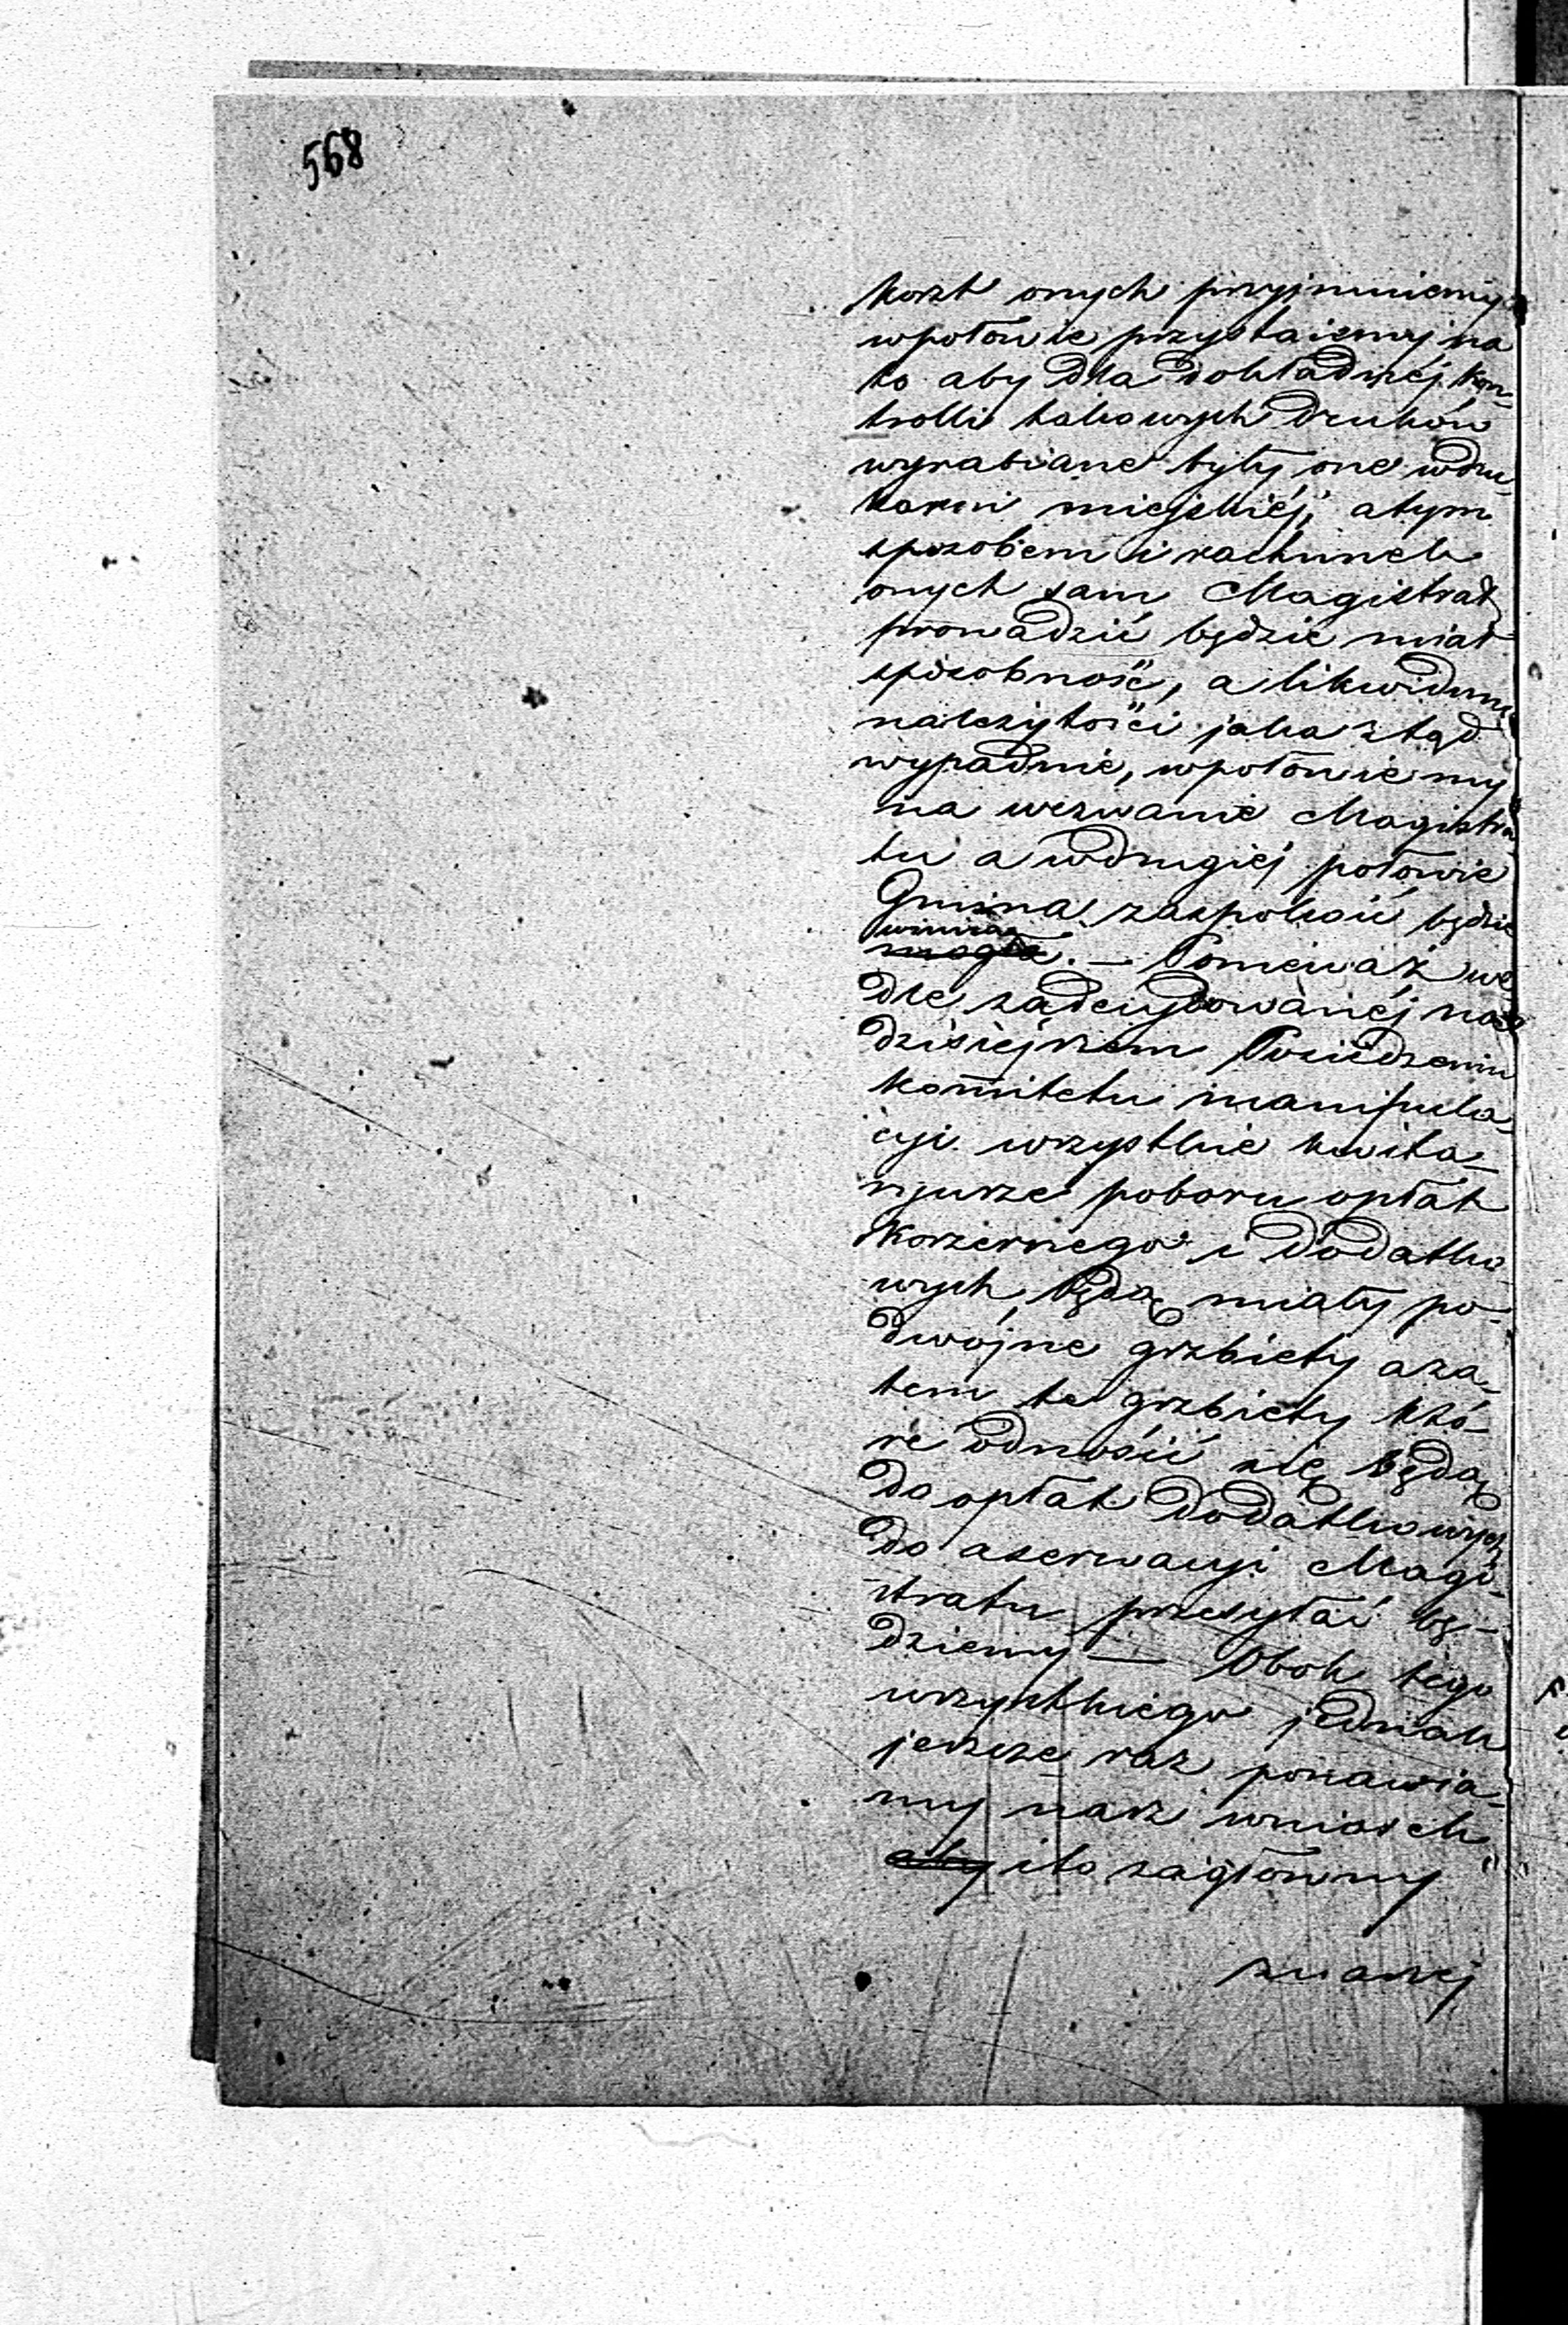 568
koszt onych przyjmuiemy
wpołowie przystaiemy na
to aby dla dokładnéj kon-
trolli takowych druków
wyrabiane były one wdru-
karni miejskiéj, atym
sposobem i rachunek
onych sam Magistrat
prowadzić będzie miał
sposobność, a likwidum
należytości jaka ztąd
wypadnie, wpołowie my
na wezwanie Magistra
tu a wdrugiéj połowie
Gmina zaspokoić będzie
winna
mogła. — Ponieważ we
dle zadecydowanéj na
dzisiejszem Posiedzeniu
komitetu manipula-
cyi wszystkie kwita-
ryusze poboru opłat
koszernego i dodatko-
wych, będą miały po-
dwójne grzbiety aza-
tem te grzbiety któ-
re odnosić się będą
do opłat dodatkowych
do aserwacyi Magi-
stratu przesyłać bę-
dziemy — Obok tego
wszystkiego jednak
jeszcze raz ponawia-
my nasz wniosek
aby ito zagłówny
znaszej